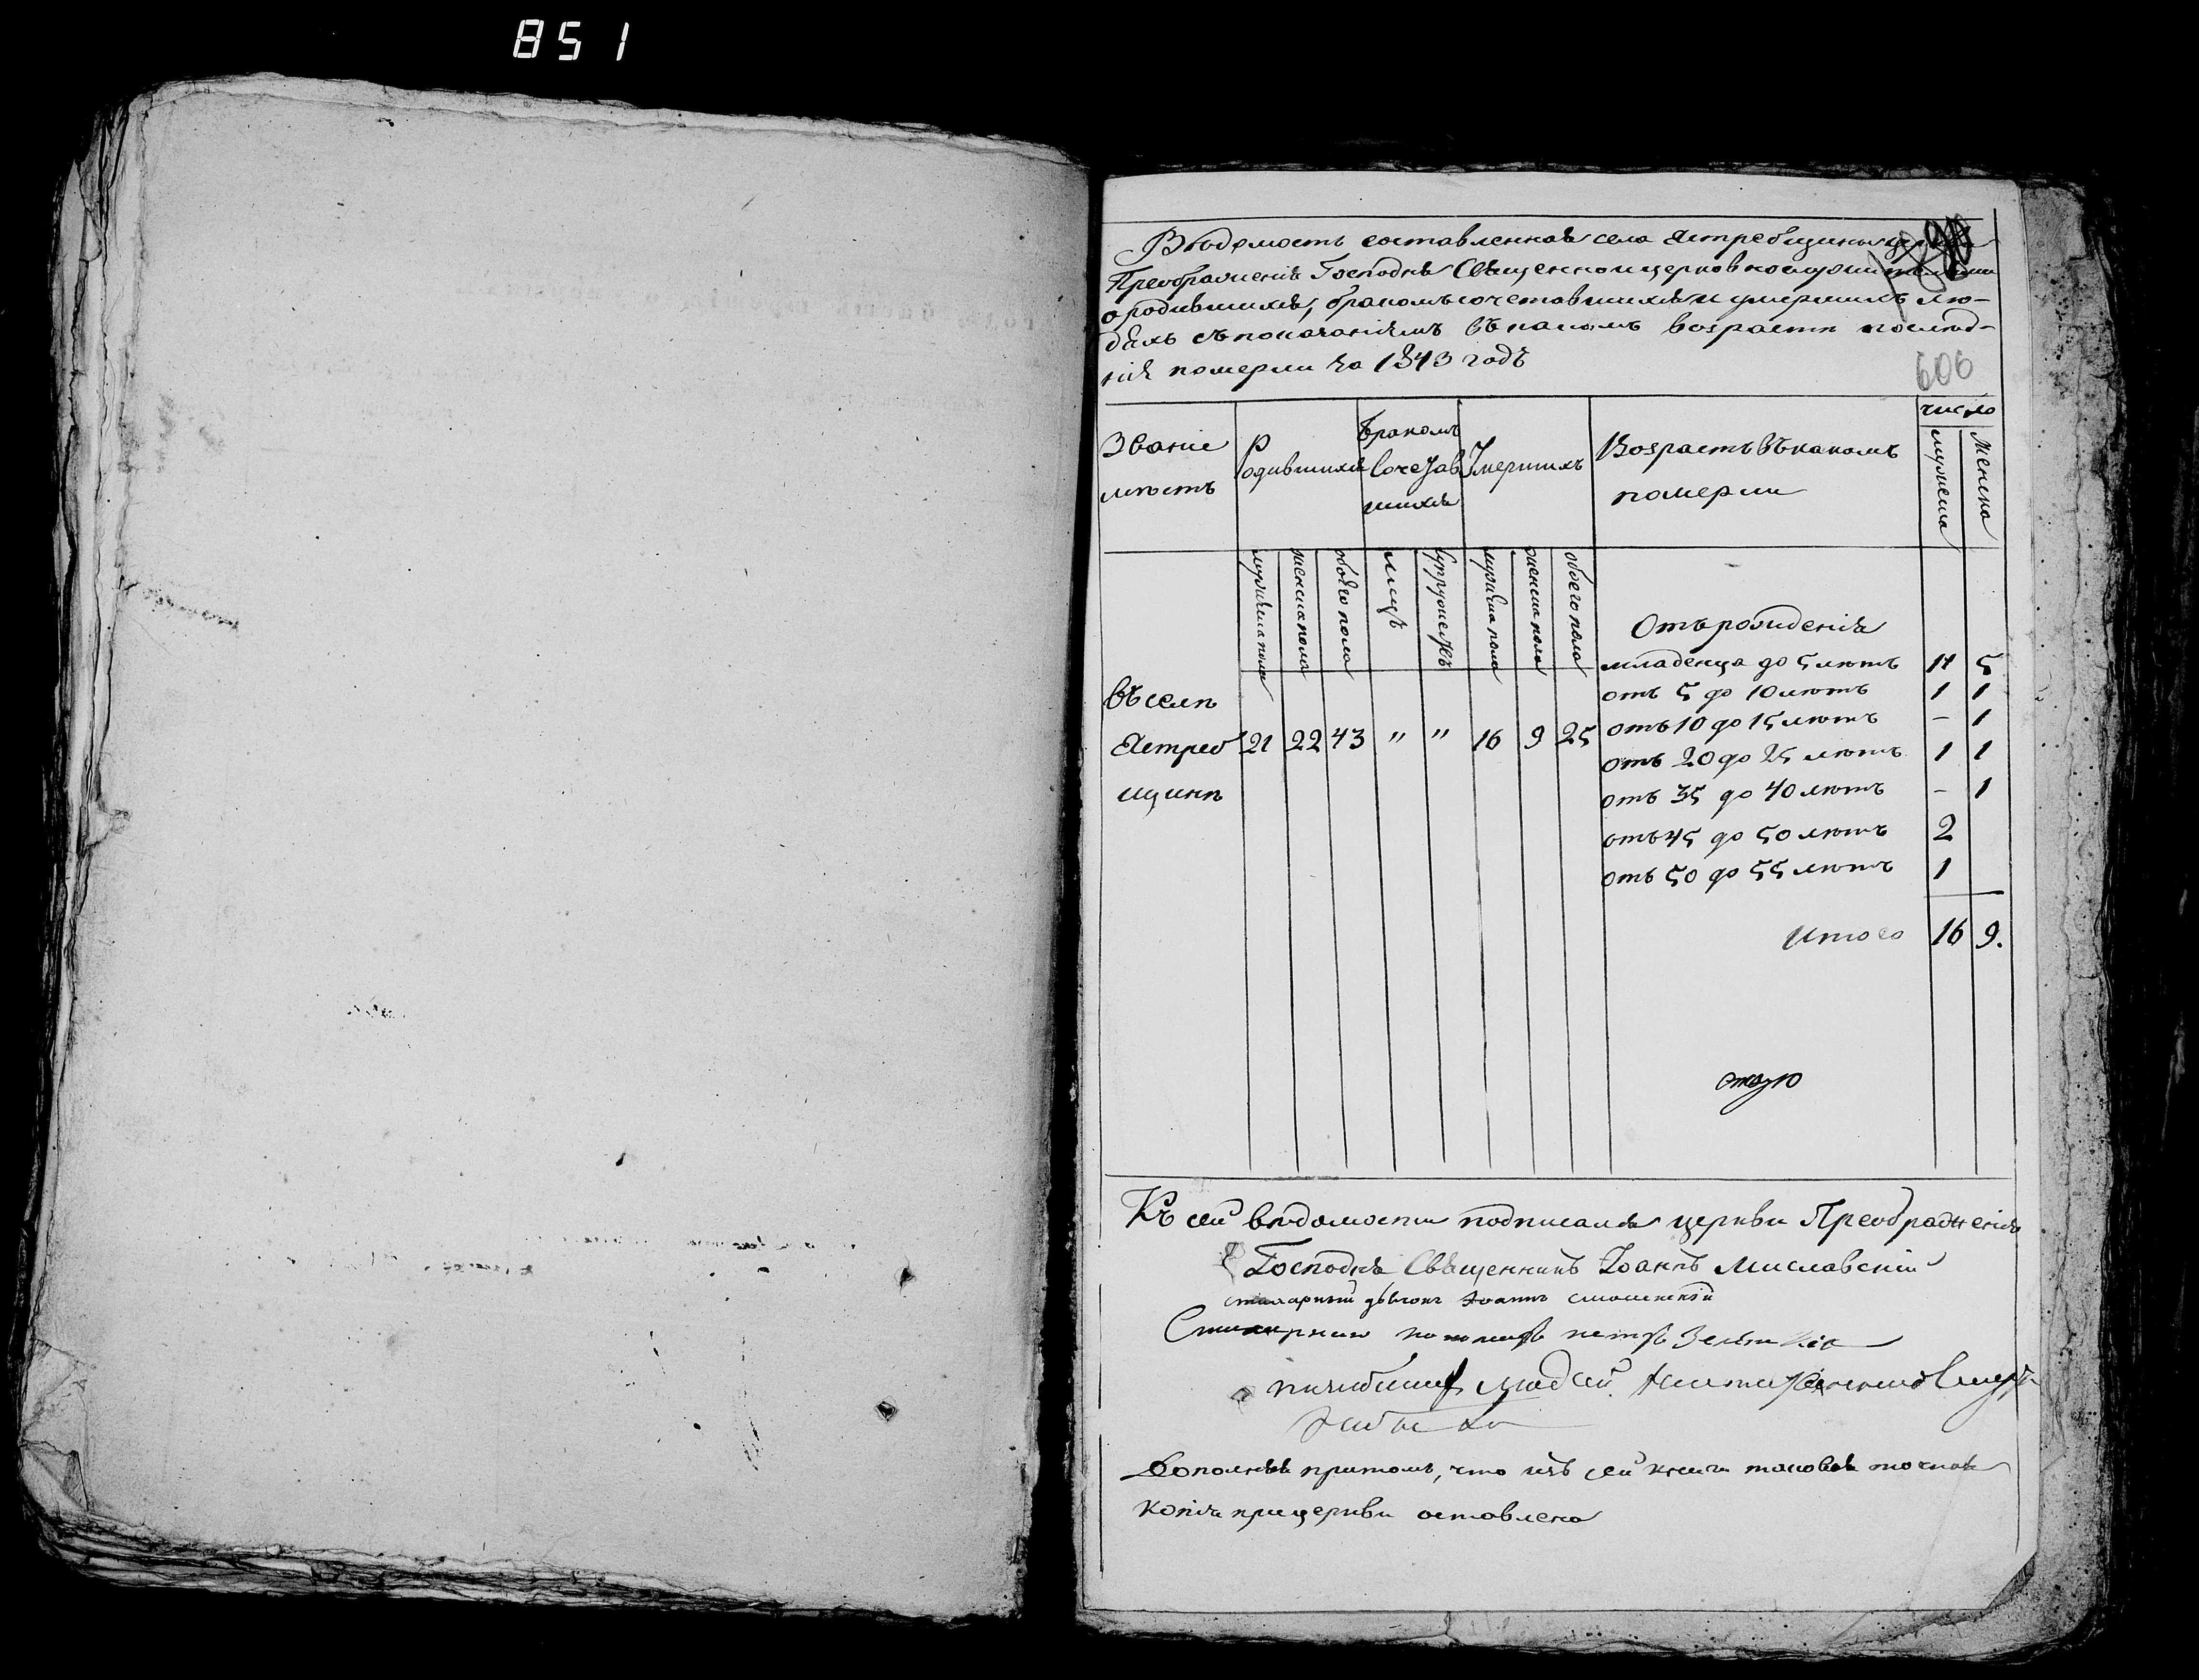 851
Вѣдомость составленная села Ястребщины церкви
Преображенія Господня Священноцерковнослужителями
о родившихся, бракомъ сочетавшихся и умершихъ лю-
дяхъ съ показаніемъ въ какомъ возрастѣ послѣд-
нія померли за 1843 годъ
606
Званіе мѣстъ
Родившихся
Бракомъ Сочетавшихся
Умершихъ
Возрастъ въ какомъ померли
число
мужеска
Женска
мужеска пола
женска пола
обоего пола
лицъ
супружествъ
мужеска пола
женска пола
обоего пола
Отъ рожденія
младенца до 5 лѣтъ 11 5
отъ 5 до 10 лѣтъ 1 1
отъ 10 до 15 лѣтъ - 1
отъ 20 до 25 лѣтъ 1 1
отъ 35 до 40 лѣтъ - 1
отъ 45 до 50 лѣтъ 2
отъ 50 до 55 лѣтъ 1
Въ селѣ
Ястреб 21 22 43 " " 16 9 25
щинѣ
Итого 16 9.
Къ сей вѣдомости подписался церкви Преображенія
Господня Священникъ Іоаннъ Миславскій
стихарный дьячокъ Іоаннъ
Стихарный пономарь петръ
Дополняя притомъ, что изъ сей книги таковая точная
копія прицеркви оставлена